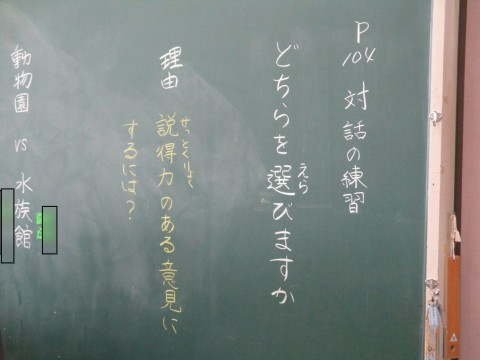 P104 対話の練習
どちらを選びますか
えら
理由 説得力のある意見に
せっとくりょく
するには?
動物園 vs 水族館